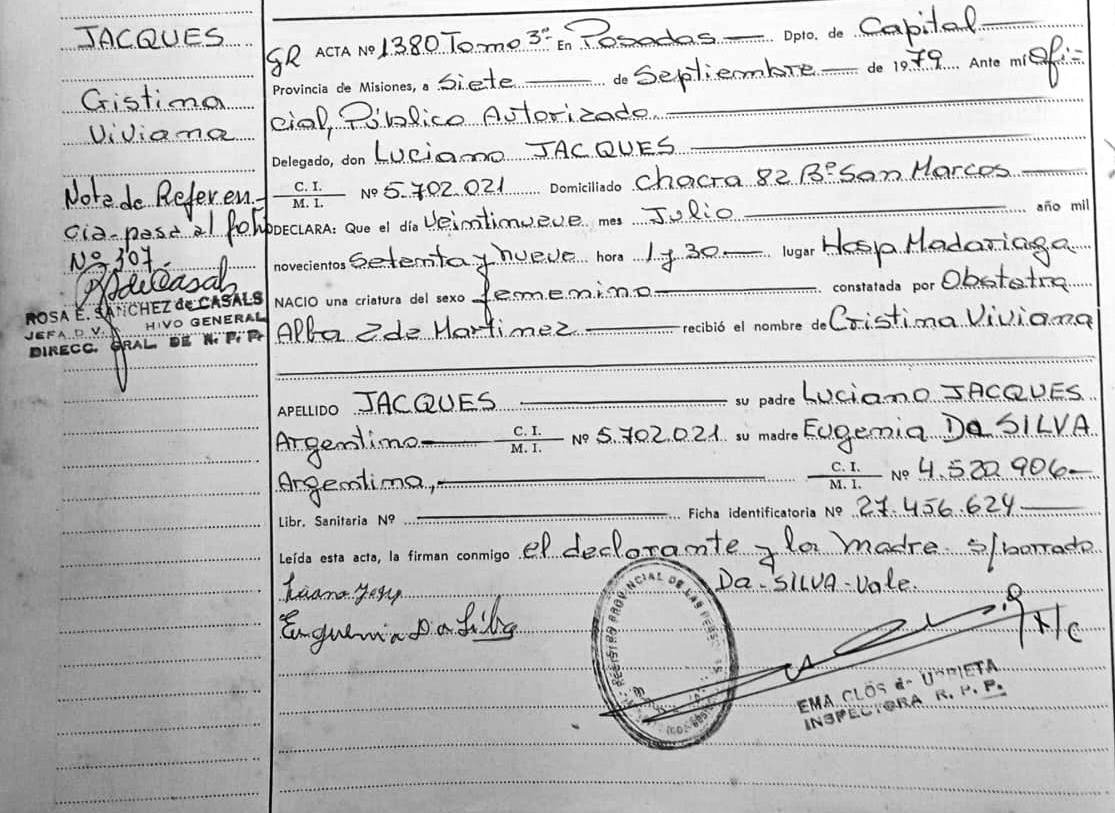 JACQUES
Cristina
Viviana
Nota de Referen-
cia-pasa al folio
Nº 307
ROSA E. SANCHEZ de CASALS
JEFA D V. HIVO GENERAL
DIRECC. GRAL. DE R. P. P.
GR ACTA Nº 1380 Tomo 3º En Posadas Dpto. de Capital
Provincia de Misiones, a Siete de Septiembre de 1979 Ante mí Ofi=
cial, Público Autorizado.
Delegado, don Luciano JACQUES
C. I. / M. I. Nº 5.702.021 Domiciliado Chacra 82 Bº San Marcos
DECLARA: Que el día Veintinueve mes Julio año mil
novecientos Setenta y nueve hora 1 y 30 lugar Hosp Madariaga
NACIO una criatura del sexo femenino constatada por Obstetra
Alba Z de Martinez recibió el nombre de Cristina Viviana
APELLIDO JACQUES su padre Luciano JACQUES
Argentino C. I. / M. I. Nº 5.702.021 su madre Eugenia Da SILVA
Argentina, C. I. / M. I. Nº 4.522.906
Libr. Sanitaria Nº Ficha identificatoria Nº 27.456.624
Leída esta acta, la firman conmigo el declarante y la madre. s/borrado
Da-SILVA-Vale.
Euguenia Da Silba
REGISTRO PROVINCIAL DE LAS PERSONAS
EMA CLOS de URRIETA
INSPECTORA R. P. P.